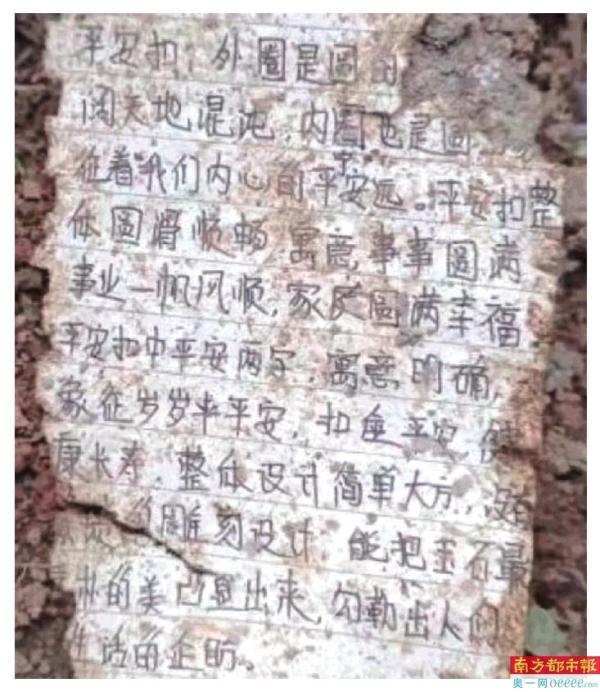 平安扣 外圈是圆的
阔天地混沌,内圈也是圆
征着我们内心的平安宁远。平安扣整
体圆滑顺畅,寓意,事事圆满
事业一帆风顺,家庭圆满幸福
平安扣中平安两字,寓意明确,
象征岁岁平平安,扣座平安,健
康长寿,整体设计简单大方,没有
雕刻设计 能把玉石最
朴的美凸显出来,勾勒出人们
生活的企盼。
南方都市報
奥一网oeeee.com